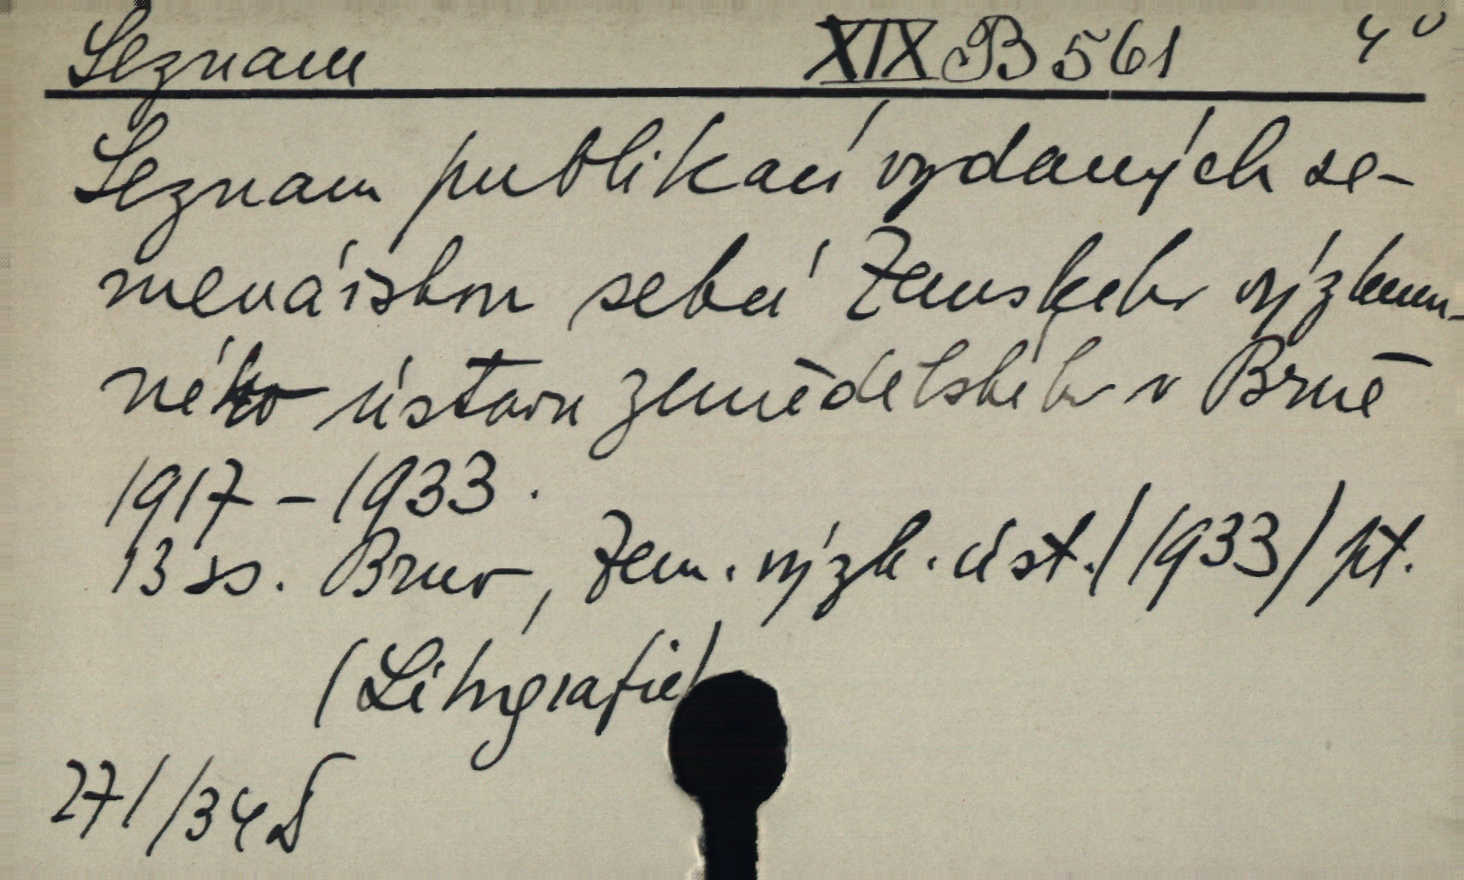 Seznam XIX B 561 4°
Seznam publikací vydaných se-
menářskou sekcí Zemského výzkum-
ného ústavu zemědělského v Brně
1917-1933.
13 ss. Brno, Zem. výzk. úst. /1933/ pt.
/Litografie/
27/ /34 D